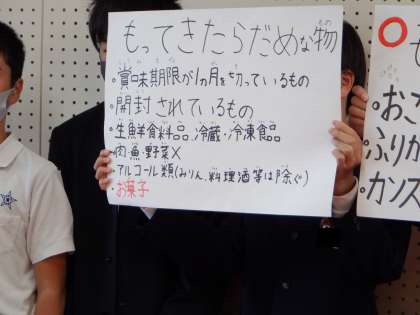 もってきたらだめな物
・賞味期限が1ヵ月を切っているもの
・開封されているもの
・生鮮食料品、冷蔵・冷凍食品
・肉・魚・野菜×
・アルコール類(みりん、料理酒等は除ぐ)
・お菓子
・おこ
・ふりか
・カンス